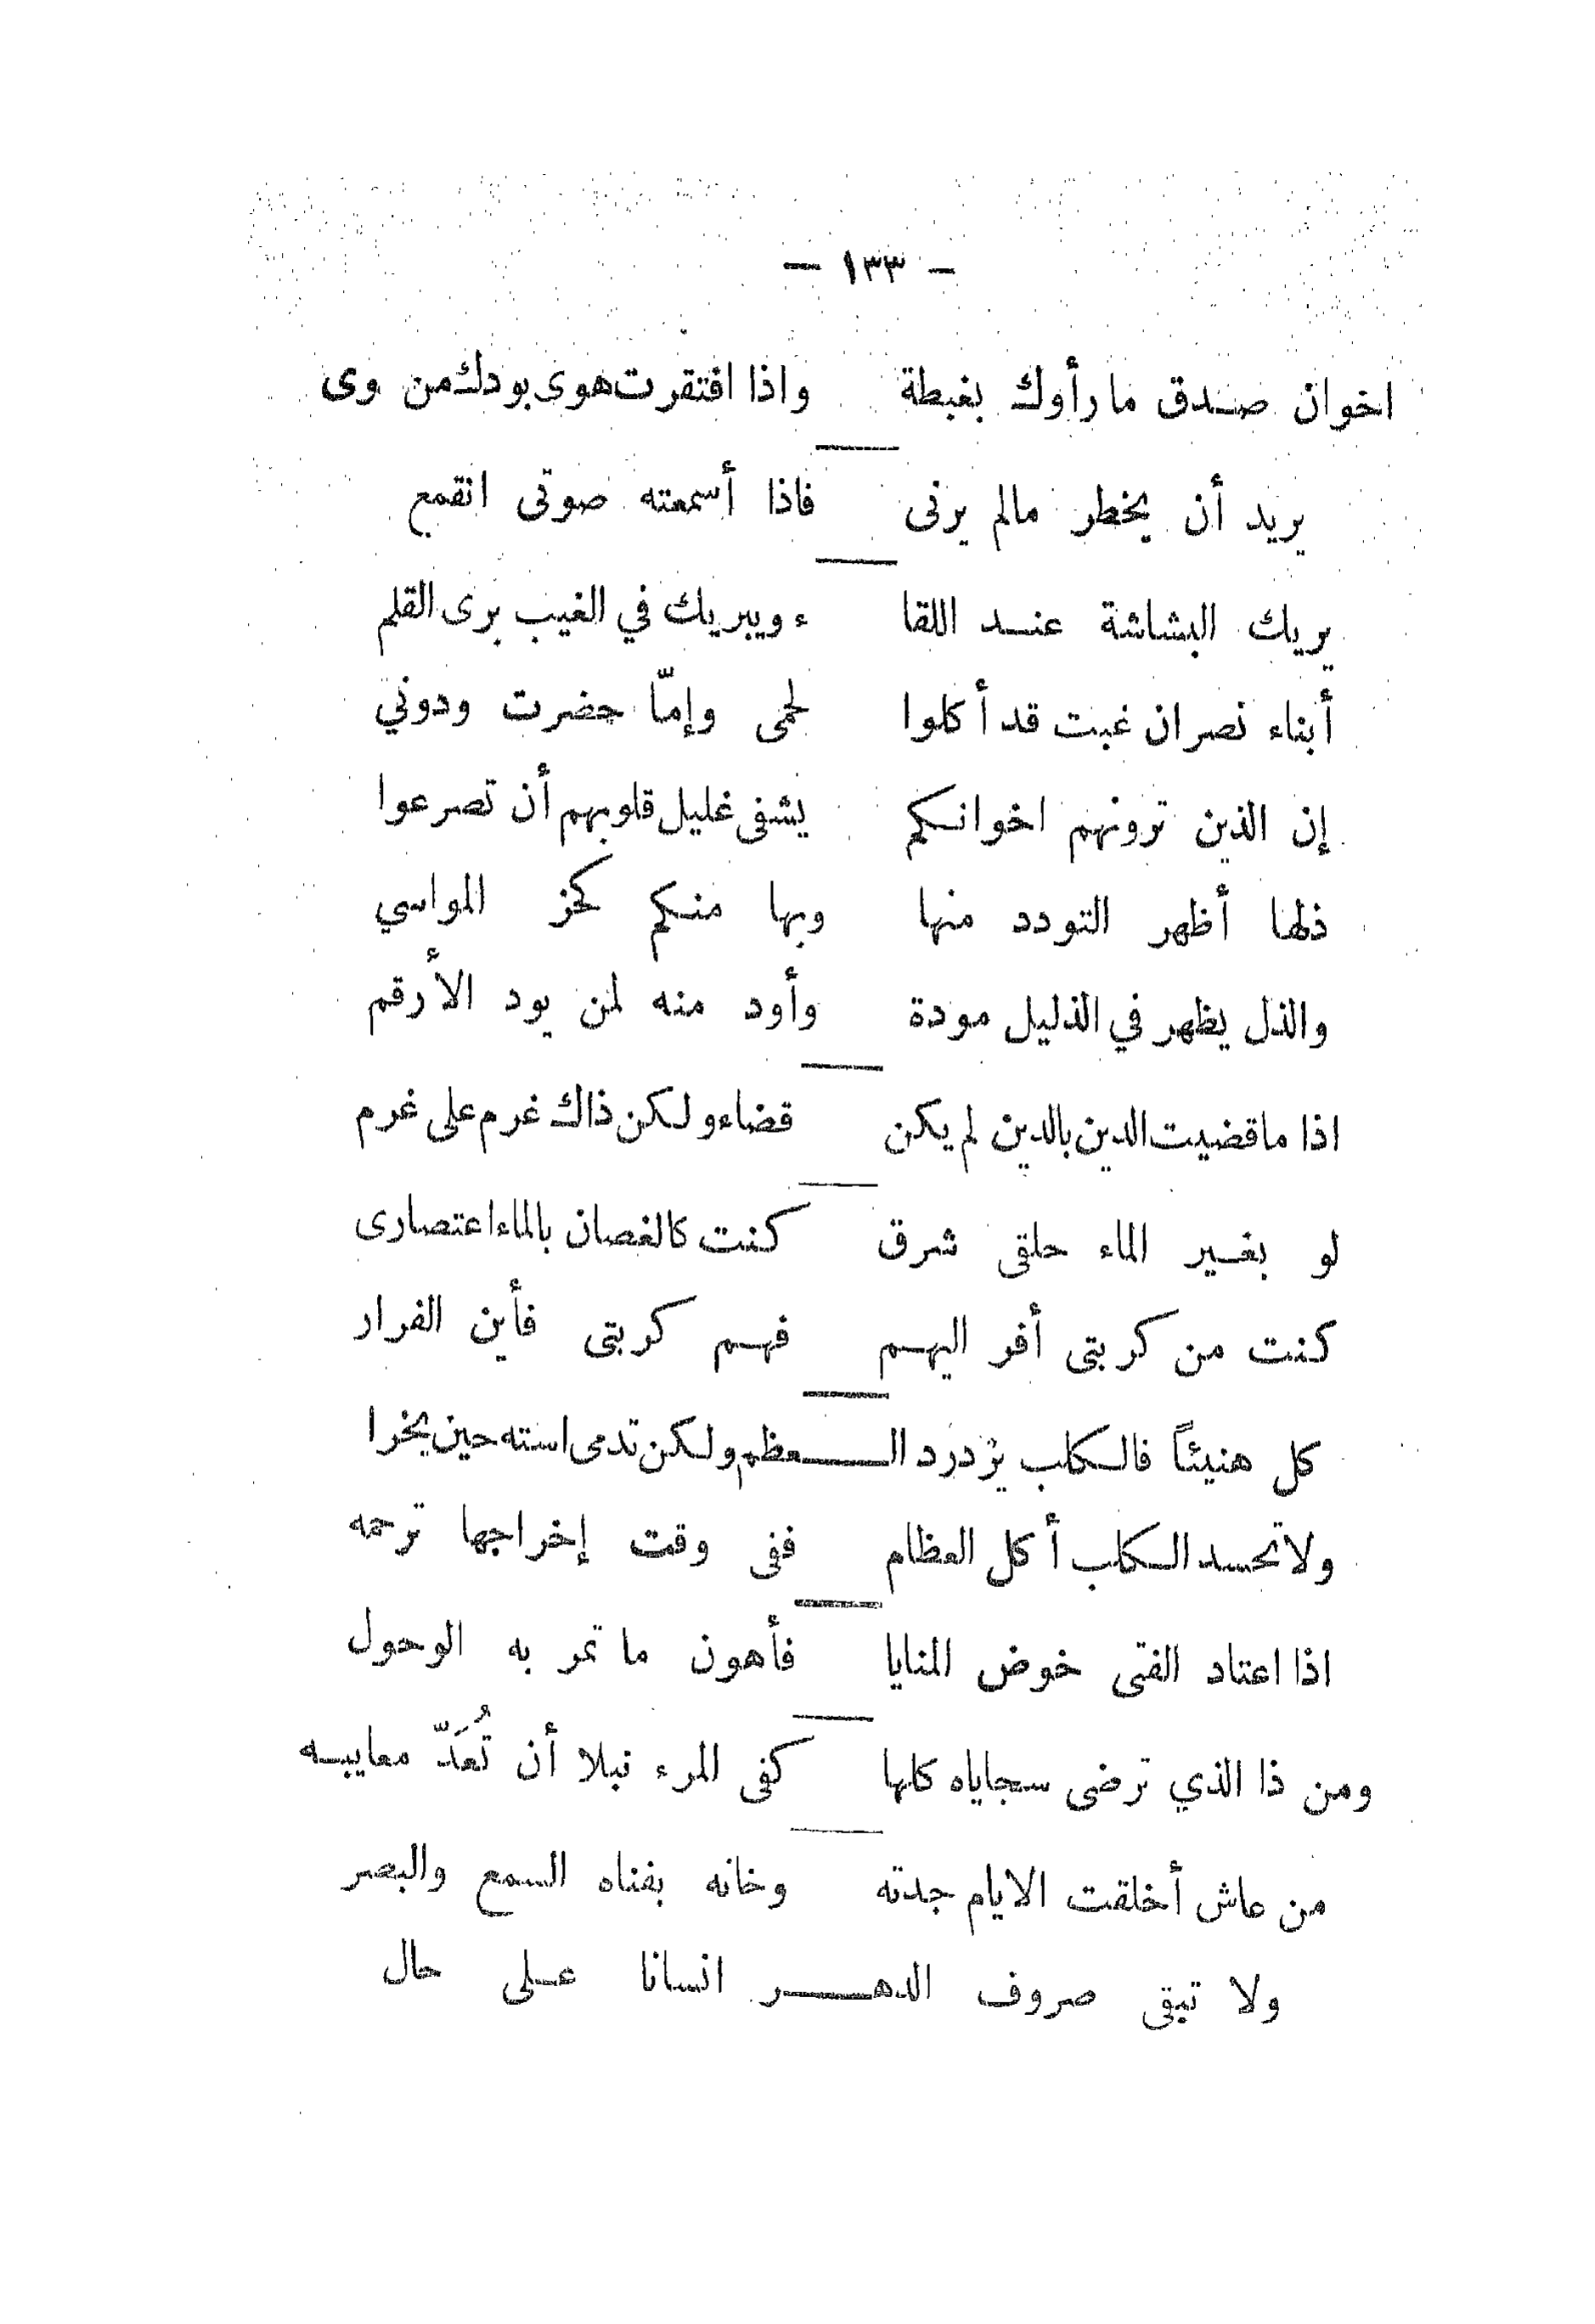 - ١٣٣ -
اخوان صدق ما رأوك بغبطة واذا افتقرت هوى بودك من وى
يريد أن يخطر مالم يرنى فاذا أسمعته صوتى انقمع
يريك البشاشة عند اللقا ء ويبريك في الغيب برى القلم
أبناء نصران غبت قد أكلوا لحمى وإمّا حضرت ودوني
إن الذين ترونهم اخوانكم يشفى غليل قلوبهم أن تصرعوا
ذلها أظهر التودد منها وبها منكم كحز المواسي
والذل يظهر في الذليل مودة وأود منه لمن يود الأرقم
اذا ما قضيت الدين بالدين لم يكن قضاء ولكن ذاك غرم على غرم
لو بغير الماء حلقى شرق كنت كالغصان بالماء اعتصارى
كنت من كربتى أفر اليهم فهم كربتى فأين الفرار
كل هنيئاً فالكلب يزدرد العظم ولكن تدمى استه حين يخرا
ولا تحسد الكلب أكل العظام ففى وقت إخراجها ترحمه
اذا اعتاد الفتى خوض المنايا فأهون ما تمر به الوحول
ومن ذا الذي ترضى سجاياه كلها كفى المرء نبلا أن تُعَدّ معايبه
من عاش أخلقت الايام جدته وخانه بفناه السمع والبصر
ولا تبقى صروف الدهر انسانا على حال